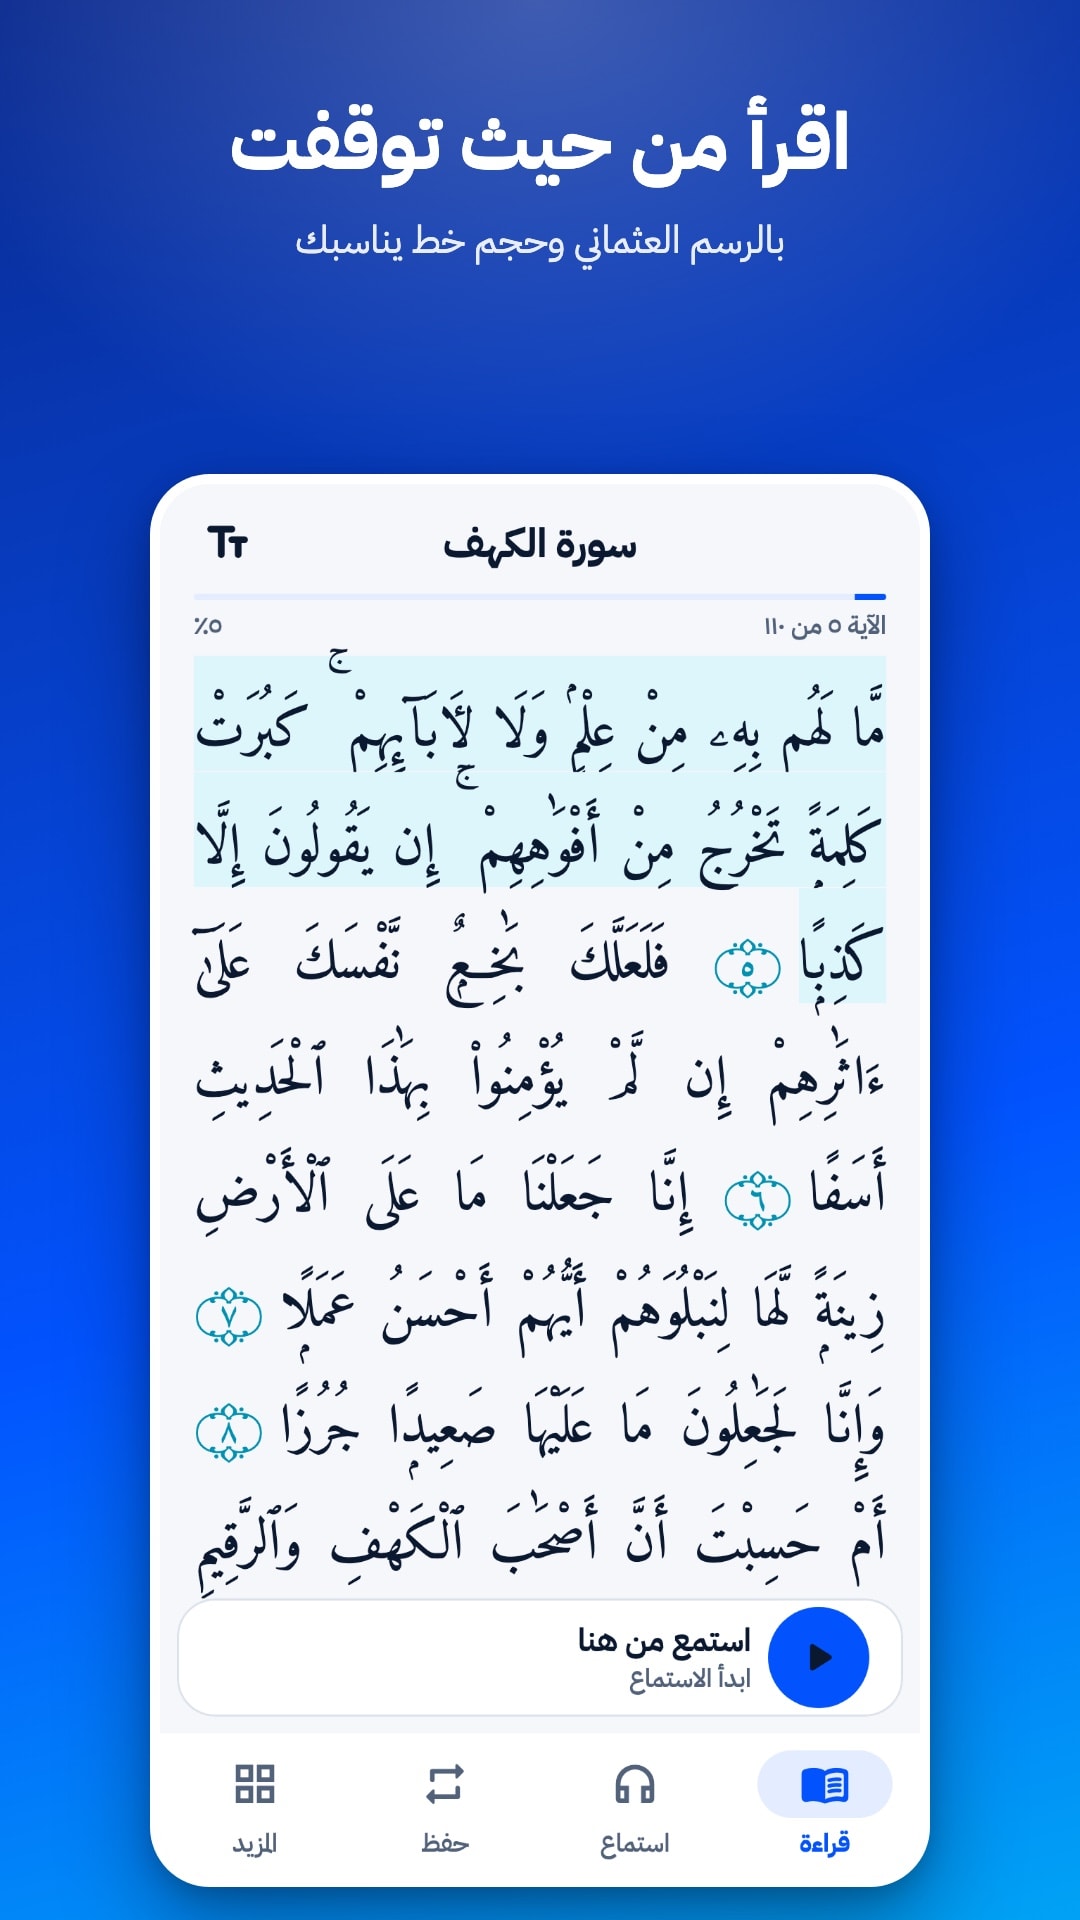 اقرأ من حيث توقفت
بالرسم العثماني وحجم خط يناسبك
سورة الكهف
الآية ٥ من ١١٠
٥٪
مَّا لَهُم بِهِۦ مِنْ عِلْمٍۢ وَلَا لِـَٔابَآئِهِمْ ۚ كَبُرَتْ
كَلِمَةًۭ تَخْرُجُ مِنْ أَفْوَٰهِهِمْ ۚ إِن يَقُولُونَ إِلَّا
كَذِبًۭا ٥ فَلَعَلَّكَ بَـٰخِعٌۭ نَّفْسَكَ عَلَىٰٓ
ءَاثَـٰرِهِمْ إِن لَّمْ يُؤْمِنُوا۟ بِهَـٰذَا ٱلْحَدِيثِ
أَسَفًا ٦ إِنَّا جَعَلْنَا مَا عَلَى ٱلْأَرْضِ
زِينَةًۭ لَّهَا لِنَبْلُوَهُمْ أَيُّهُمْ أَحْسَنُ عَمَلًۭا ٧
وَإِنَّا لَجَـٰعِلُونَ مَا عَلَيْهَا صَعِيدًۭا جُرُزًا ٨
أَمْ حَسِبْتَ أَنَّ أَصْحَـٰبَ ٱلْكَهْفِ وَٱلرَّقِيمِ
استمع من هنا
ابدأ الاستماع
قراءة
استماع
حفظ
المزيد